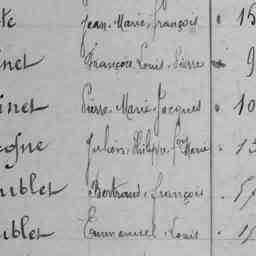 te Jean-Marie, François 15
inet François, Louis, Pierre 9
inet Pierre, Marie, Jacques 10
cogne Julien, Philippe, Marie 13
ublet Bertrand, François
ublet Emmanuel, Louis